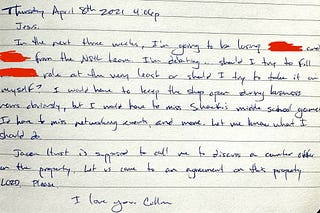 Thursday April 8th 2021 4:06p
Jesus.
In the next three weeks, I'm going to be losing and
from the team. I'm debating... should I try to fill
role at the very least or should I try to take it on
myself? I would have to keep the shop open during business
hours obviously, but I would have to miss middle school games.
I'd have to miss networking events, and more. Let me know what I
should do.
Jason Hurst is supposed to call me to discuss a counter offer
on the property. Let us come to an agreement on this property
LORD, Please.
I love you.